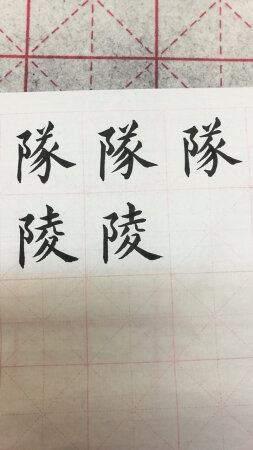 隊隊隊
陵陵